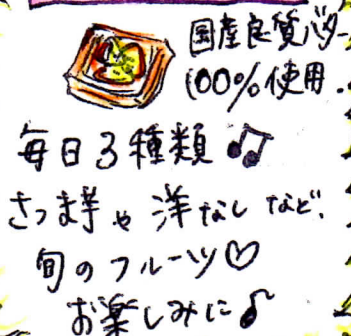 国産良質バター
100%使用.
毎日3種類♫
さつま芋や洋なしなど、
旬のフルーツ♡
お楽しみに♪